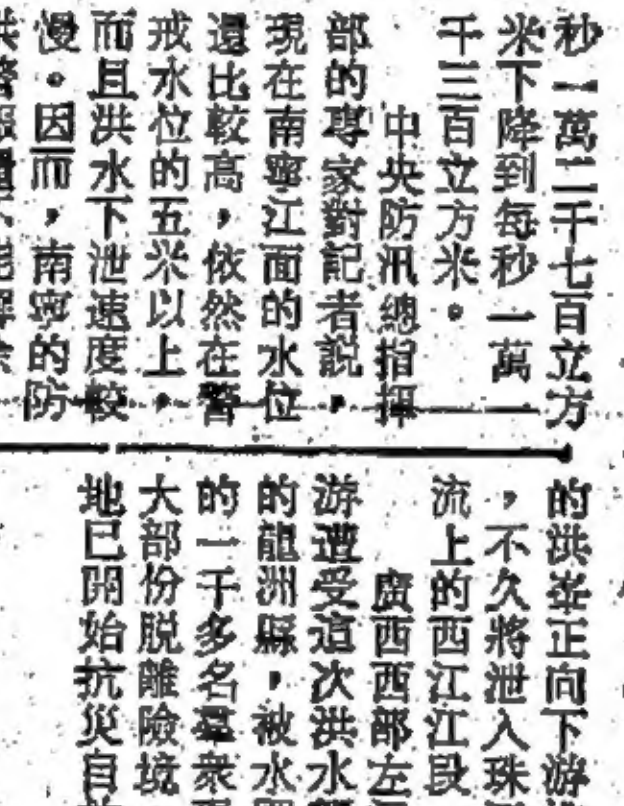 秒一萬二千七百立方
米下降到每秒一萬一
千三百立方米。
中央防汛總指揮
部的專家對記者說，
現在南寧江面的水位
還比較高，依然在警
戒水位的五米以上，
而且洪水下泄速度較
慢。因而，南寧的防
的洪峯正向下游
，不久將泄入珠
流上的西江江段
廣西西部左
游遭受這次洪水
的龍洲縣，被水
的一千多名羣衆
大部份脱離險境
地已開始抗災自